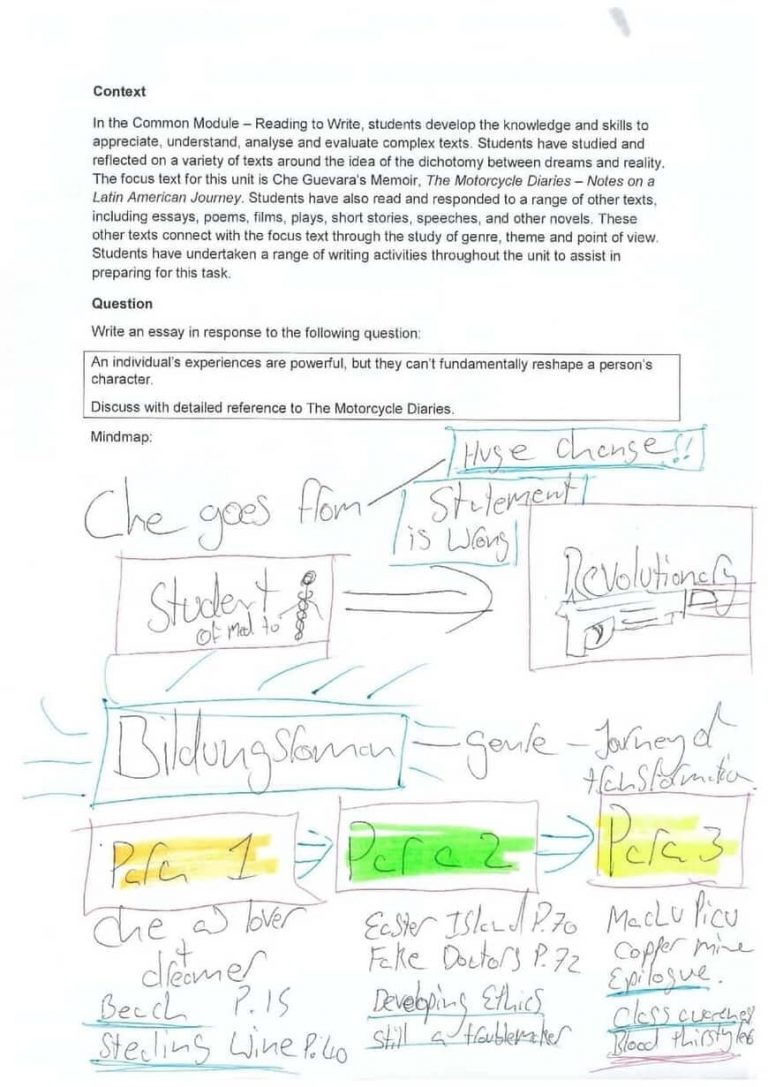 Context
In the Common Module – Reading to Write, students develop the knowledge and skills to
appreciate, understand, analyse and evaluate complex texts. Students have studied and
reflected on a variety of texts around the idea of the dichotomy between dreams and reality.
The focus text for this unit is Che Guevara's Memoir, The Motorcycle Diaries – Notes on a
Latin American Journey. Students have also read and responded to a range of other texts,
including essays, poems, films, plays, short stories, speeches, and other novels. These
other texts connect with the focus text through the study of genre, theme and point of view.
Students have undertaken a range of writing activities throughout the unit to assist in
preparing for this task.
Question
Write an essay in response to the following question:
An individual's experiences are powerful, but they can't fundamentally reshape a person's
character.
Discuss with detailed reference to The Motorcycle Diaries.
Mindmap:
Huge change!!
Che goes from
Statement
is wrong
Student
of med to
Revolutionary
Bildungsroman – genre – Journey of
transformation
Para 1
Para 2
Para 3
Che as lover
+
dreamer
Beach P.15
Stealing Wine P.40
Easter Island P.70
Fake Doctors P.72
Developing Ethics
Still a troublemaker
Machu Picu
Copper mine
Epilogue.
Class awareness
Blood thirsty